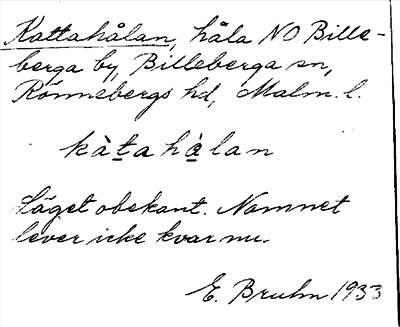 Kattahålan, håla NO Bille-
berga by, Billeberga sn,
Rönnebergs hd, Malm. l.
kàt̲a hà̲lan
Läget obekant. Namnet
lever icke kvar nu.
E. Bruhn 1933